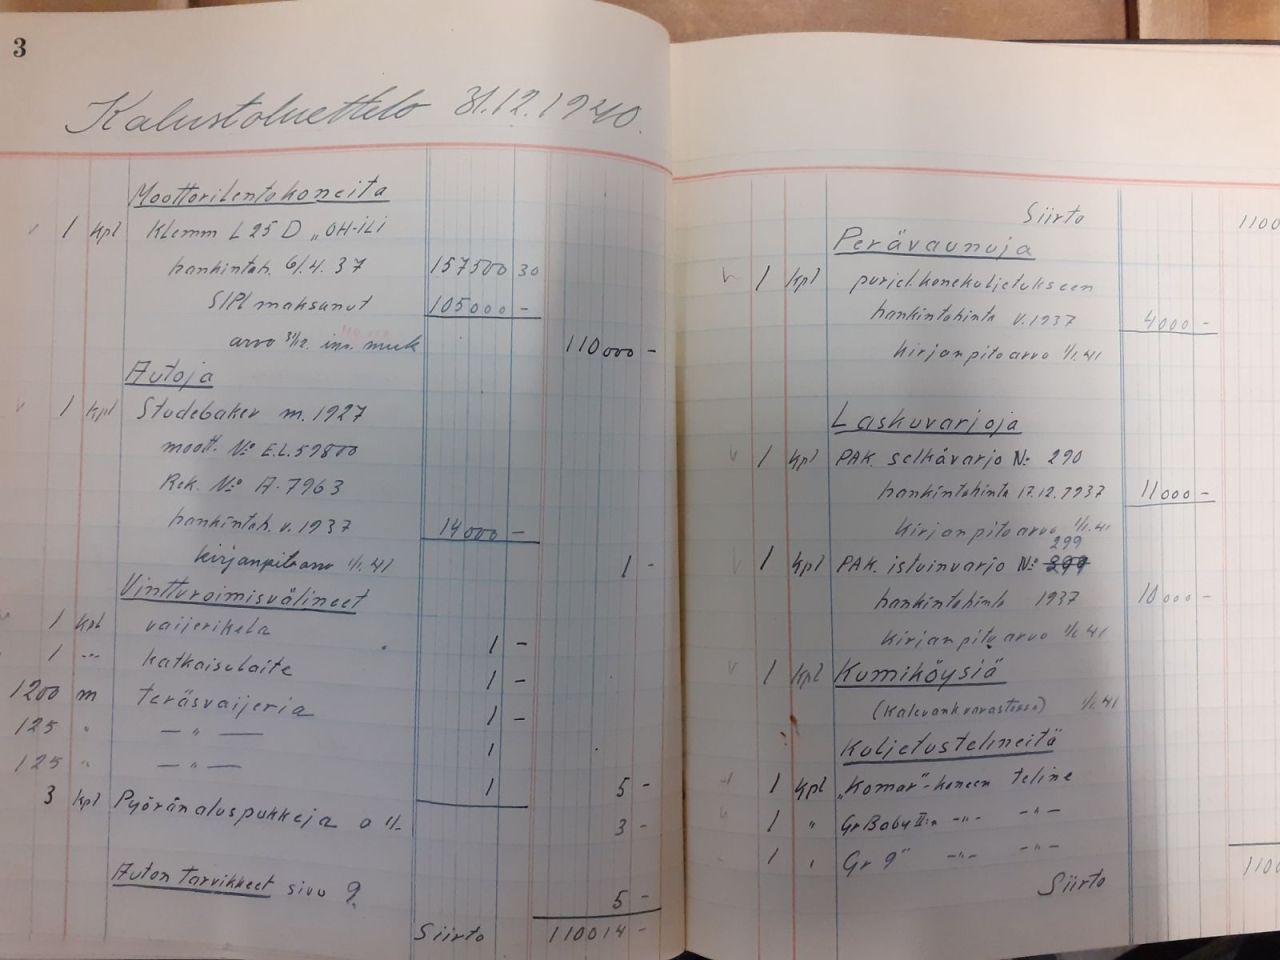 3
Kalustoluettelo 31.12.1940.
Moottorilentokoneita
1 kpl Klemm L 25 D „OH-ILI
hankintah. 6/4.37 157500 30
SIPL maksanut 105000 -
arvo 31/12. inv. muk 110000 -
Autoja
1 kpl Studebaker m. 1927
moott. No E.L. 59800
Rek. No A-7963
hankintah. v. 1937 14000 -
kirjanpitoarvo 1/1.41 1 -
Vintturoimisvälineet
1 kpl vaijerikela 1 -
1 -"- katkaisulaite 1 -
1200 m teräsvaijeria 1 -
125 " — " — 1
125 " — " — 1 5 -
3 kpl Pyöränaluspukkeja a 1/- 3 -
Auton tarvikkeet sivu 9. 5 -
Siirto 110014 -
Siirto 1100
Perävaunuja
1 kpl purjel.konekuljetukseen
hankintahinta v. 1937 4000 -
kirjanpitoarvo 1/1.41
Laskuvarjoja
1 kpl PAK. selkävarjo No 290
hankintahinta 17.12.1937 11000 -
kirjanpitoarvo 1/1.41
299
1 kpl PAK. istuinvarjo No
hankintahinta 1937 10000 -
kirjanpitoarvo 1/1.41
1 kpl Kumiköysiä
(Kalevank varastossa) 1/1.41
Kuljetustelineitä
1 kpl „Komar"-koneen teline
1 " GrBaby II:n -"- -"-
1 " Gr 9" -"- -"-
Siirto 1100